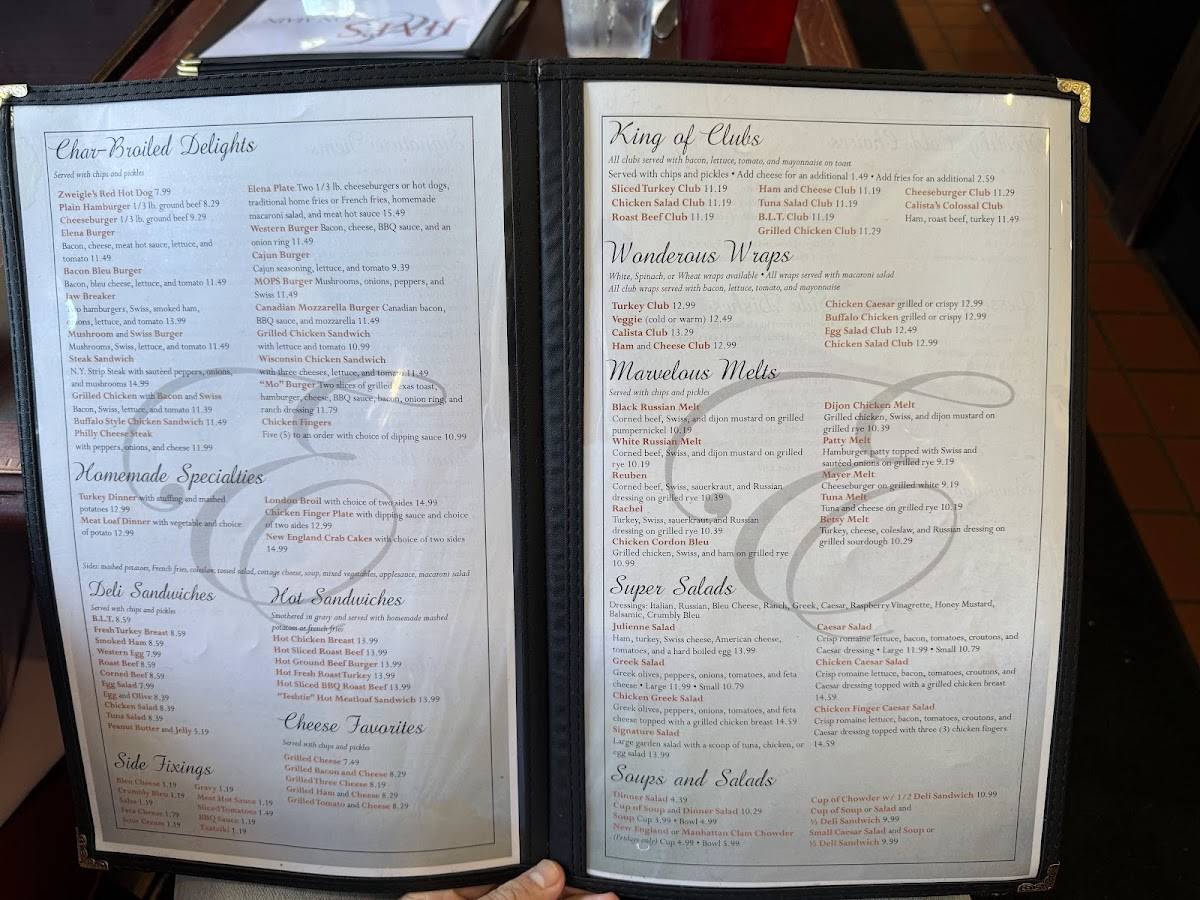 Char-Broiled Delights
Served with chips and pickles
Zweigle's Red Hot Dog 7.99
Plain Hamburger 1/3 lb. ground beef 8.29
Cheeseburger 1/3 lb. ground beef 9.29
Elena Burger
Bacon, cheese, meat hot sauce, lettuce, and
tomato 11.49
Bacon Bleu Burger
Bacon, bleu cheese, lettuce, and tomato 11.49
Jaw Breaker
Two hamburgers, Swiss, smoked ham,
onions, lettuce, and tomato 13.99
Mushroom and Swiss Burger
Mushrooms, Swiss, lettuce, and tomato 11.49
Steak Sandwich
N.Y. Strip Steak with sautéed peppers, onions,
and mushrooms 14.99
Grilled Chicken with Bacon and Swiss
Bacon, Swiss, lettuce, and tomato 11.39
Buffalo Style Chicken Sandwich 11.49
Philly Cheese Steak
with peppers, onions, and cheese 11.99
Elena Plate Two 1/3 lb. cheeseburgers or hot dogs,
traditional home fries or French fries, homemade
macaroni salad, and meat hot sauce 15.49
Western Burger Bacon, cheese, BBQ sauce, and an
onion ring 11.49
Cajun Burger
Cajun seasoning, lettuce, and tomato 9.39
MOPS Burger Mushrooms, onions, peppers, and
Swiss 11.49
Canadian Mozzarella Burger Canadian bacon,
BBQ sauce, and mozzarella 11.49
Grilled Chicken Sandwich
with lettuce and tomato 10.99
Wisconsin Chicken Sandwich
with three cheeses, lettuce, and tomato 11.49
"Mo" Burger Two slices of grilled Texas toast,
hamburger, cheese, BBQ sauce, bacon, onion ring, and
ranch dressing 11.79
Chicken Fingers
Five (5) to an order with choice of dipping sauce 10.99
Homemade Specialties
Turkey Dinner with stuffing and mashed
potatoes 12.99
Meat Loaf Dinner with vegetable and choice
of potato 12.99
London Broil with choice of two sides 14.99
Chicken Finger Plate with dipping sauce and choice
of two sides 12.99
New England Crab Cakes with choice of two sides
14.99
Sides: mashed potatoes, French fries, coleslaw, tossed salad, cottage cheese, soup, mixed vegetables, applesauce, macaroni salad
Deli Sandwiches
Served with chips and pickles
B.L.T. 8.59
Fresh Turkey Breast 8.59
Smoked Ham 8.59
Western Egg 7.99
Roast Beef 8.59
Corned Beef 8.59
Egg Salad 7.99
Egg and Olive 8.39
Chicken Salad 8.39
Tuna Salad 8.39
Peanut Butter and Jelly 5.19
Hot Sandwiches
Smothered in gravy and served with homemade mashed
potatoes or french fries
Hot Chicken Breast 13.99
Hot Sliced Roast Beef 13.99
Hot Ground Beef Burger 13.99
Hot Fresh Roast Turkey 13.99
Hot Sliced BBQ Roast Beef 13.99
Hot Meatloaf Sandwich 13.99
Cheese Favorites
Served with chips and pickles
Grilled Cheese 7.49
Grilled Bacon and Cheese 8.29
Grilled Three Cheese 8.19
Grilled Ham and Cheese 8.29
Grilled Tomato and Cheese 8.29
Side Fixings
Bleu Cheese 1.19
Crumbly Bleu 1.19
Salsa 1.19
Feta Cheese 1.79
Sour Cream 1.19
Gravy 1.19
Meat Hot Sauce 1.19
Sliced Tomatoes 1.49
BBQ Sauce 1.19
Tzatziki 1.19
King of Clubs
All clubs served with bacon, lettuce, tomato, and mayonnaise on toast
Served with chips and pickles • Add cheese for an additional 1.49 • Add fries for an additional 2.59
Sliced Turkey Club 11.19
Chicken Salad Club 11.19
Roast Beef Club 11.19
Ham and Cheese Club 11.19
Tuna Salad Club 11.19
B.L.T. Club 11.19
Grilled Chicken Club 11.29
Cheeseburger Club 11.29
Calista's Colossal Club
Ham, roast beef, turkey 11.49
Wonderous Wraps
White, Spinach, or Wheat wraps available • All wraps served with macaroni salad
All club wraps served with bacon, lettuce, tomato, and mayonnaise
Turkey Club 12.99
Veggie (cold or warm) 12.49
Calista Club 13.29
Ham and Cheese Club 12.99
Chicken Caesar grilled or crispy 12.99
Buffalo Chicken grilled or crispy 12.99
Egg Salad Club 12.49
Chicken Salad Club 12.99
Marvelous Melts
Served with chips and pickles
Black Russian Melt
Corned beef, Swiss, and dijon mustard on grilled
pumpernickel 10.19
White Russian Melt
Corned beef, Swiss, and dijon mustard on grilled
rye 10.19
Reuben
Corned beef, Swiss, sauerkraut, and Russian
dressing on grilled rye 10.39
Rachel
Turkey, Swiss, sauerkraut, and Russian
dressing on grilled rye 10.39
Chicken Cordon Bleu
Grilled chicken, Swiss, and ham on grilled rye
10.99
Dijon Chicken Melt
Grilled chicken, Swiss, and dijon mustard on
grilled rye 10.39
Patty Melt
Hamburger patty topped with Swiss and
sautéed onions on grilled rye 9.19
Mayer Melt
Cheeseburger on grilled white 9.19
Tuna Melt
Tuna and cheese on grilled rye 10.19
Betsy Melt
Turkey, cheese, coleslaw, and Russian dressing on
grilled sourdough 10.29
Super Salads
Dressings: Italian, Russian, Bleu Cheese, Ranch, Greek, Caesar, Raspberry Vinagrette, Honey Mustard,
Balsamic, Crumbly Bleu
Julienne Salad
Ham, turkey, Swiss cheese, American cheese,
tomatoes, and a hard boiled egg 13.99
Greek Salad
Greek olives, peppers, onions, tomatoes, and feta
cheese • Large 11.99 • Small 10.79
Chicken Greek Salad
Greek olives, peppers, onions, tomatoes, and feta
cheese topped with a grilled chicken breast 14.59
Signature Salad
Large garden salad with a scoop of tuna, chicken, or
egg salad 13.99
Caesar Salad
Crisp romaine lettuce, bacon, tomatoes, croutons, and
Caesar dressing • Large 11.99 • Small 10.79
Chicken Caesar Salad
Crisp romaine lettuce, bacon, tomatoes, croutons, and
Caesar dressing topped with a grilled chicken breast
14.59
Chicken Finger Caesar Salad
Crisp romaine lettuce, bacon, tomatoes, croutons, and
Caesar dressing topped with three (3) chicken fingers
14.59
Soups and Salads
Dinner Salad 4.39
Cup of Soup and Dinner Salad 10.29
Soup Cup 3.99 • Bowl 4.99
New England or Manhattan Clam Chowder
(Fridays only) Cup 4.99 • Bowl 5.99
Cup of Chowder w/ 1/2 Deli Sandwich 10.99
Cup of Soup or Salad and
½ Deli Sandwich 9.99
Small Caesar Salad and Soup or
½ Deli Sandwich 9.99